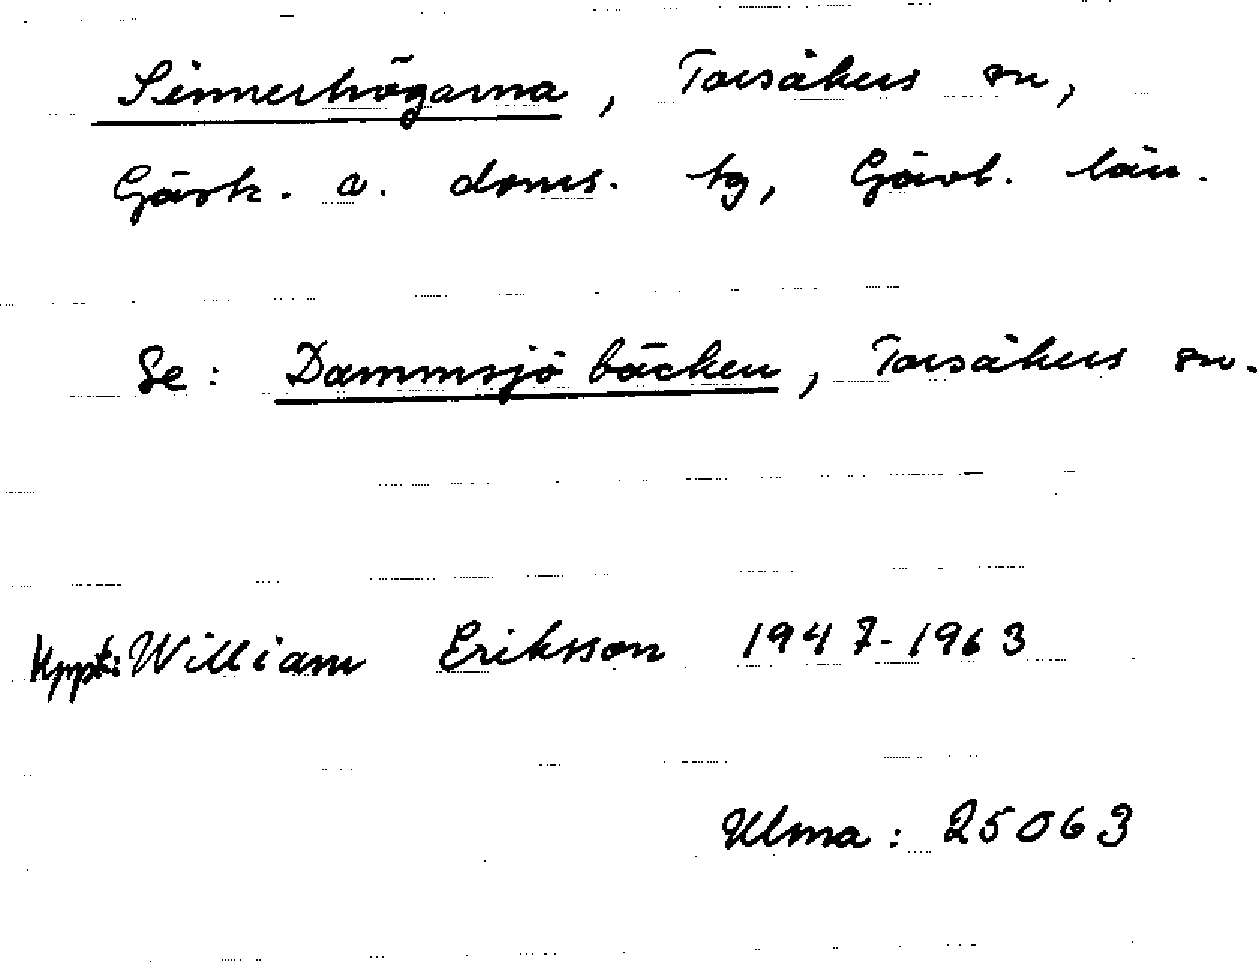 Sinnerhögarna, Torsåkers sn,
Gästr. ö. doms. tg, Gävl. län.
Se: Dammsjöbäcken, Torsåkers sn.
Uppt: William Eriksson 1947-1963
Ulma: 25063